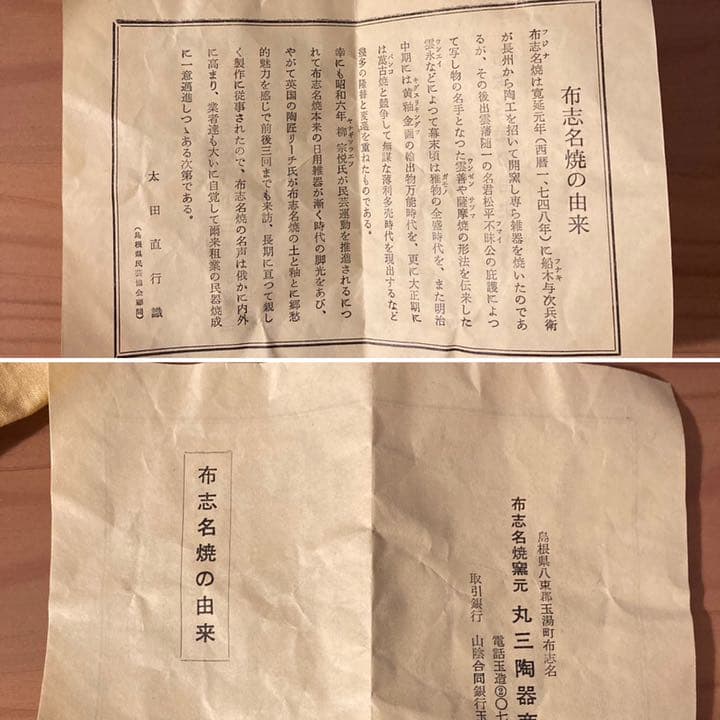 布志名焼の由来
布志名焼は寛延元年（西暦一、七四八年）に船木与次兵衛
フジナ
フナキ
が長州から陶工を招いて開窯し専ら雑器を焼いたのであ
るが、その後出雲藩随一の名君松平不昧公の庇護によつ
フマイ
て写し物の名手となつた雲善や薩摩焼の形法を伝来した
ウンゼン
サツマ
雲永などによつて幕末頃は雅物の全盛時代を、また明治
ウンエイ
ガモノ
中期には黄釉金画の絵出物万能時代を、更に大正期に
キグスリキンガ
は萬古焼と競争して無謀な薄利多売時代を現出するなど
バンコ
幾多の隆替と変遷を重ねたものである。
幸にも昭和六年柳宗悦氏が民芸運動を推進されるにつ
ヤナギソウエツ
れて布志名焼本来の日用雑器が漸く時代の脚光をあび、
やがて英国の陶匠リーチ氏が布志名焼の土と釉とに郷愁
的魅力を感じて前後三回までも来訪、長期に亘つて親し
く製作に従事されたので、布志名焼の名声は俄かに内外
に高まり、業者達も大いに自覚して爾来祖業の民器焼成
に一意邁進しつゝある次第である。
太田直行識
（島根県民芸協会顧問）
島根県八束郡玉湯町布志名
布志名焼窯元 丸三陶器
電話玉造②〇七
取引銀行 山陰合同銀行玉
布志名焼の由来